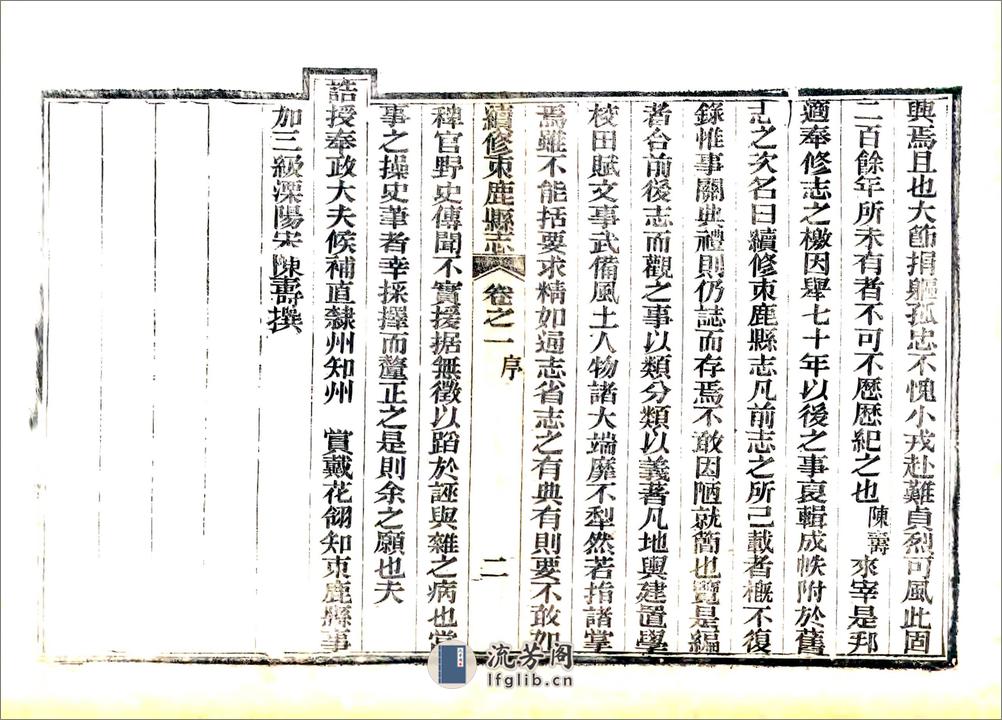 興焉且也大節捐軀孤忠不愧小戎赴難貞烈可風此固
二百餘年所未有者不可不歷歷紀之也陳壽來宰是邦
適奉修志之檄因舉七十年以後之事裒輯成帙附於舊
志之次名曰續修束鹿縣志凡前志之所已載者槪不復
錄惟事關典禮則仍誌而存焉不敢因陋就簡也覽是編
者合前後志而觀之事以類分類以義著凡地輿建置學
校田賦文事武備風土人物諸大端靡不犁然若指諸掌
焉雖不能括要求精如通志省志之有典有則要不敢如
續修束鹿縣志 卷之一 序 二
稗官野史傳聞不實援据無徵以蹈於誣與雜之病也當
事之操史筆者幸採擇而釐正之是則余之願也夫
誥授奉政大夫候補直隸州知州 賞戴花翎知束鹿縣事
加三級溧陽宋陳壽撰
流芳阁
lfglib.cn